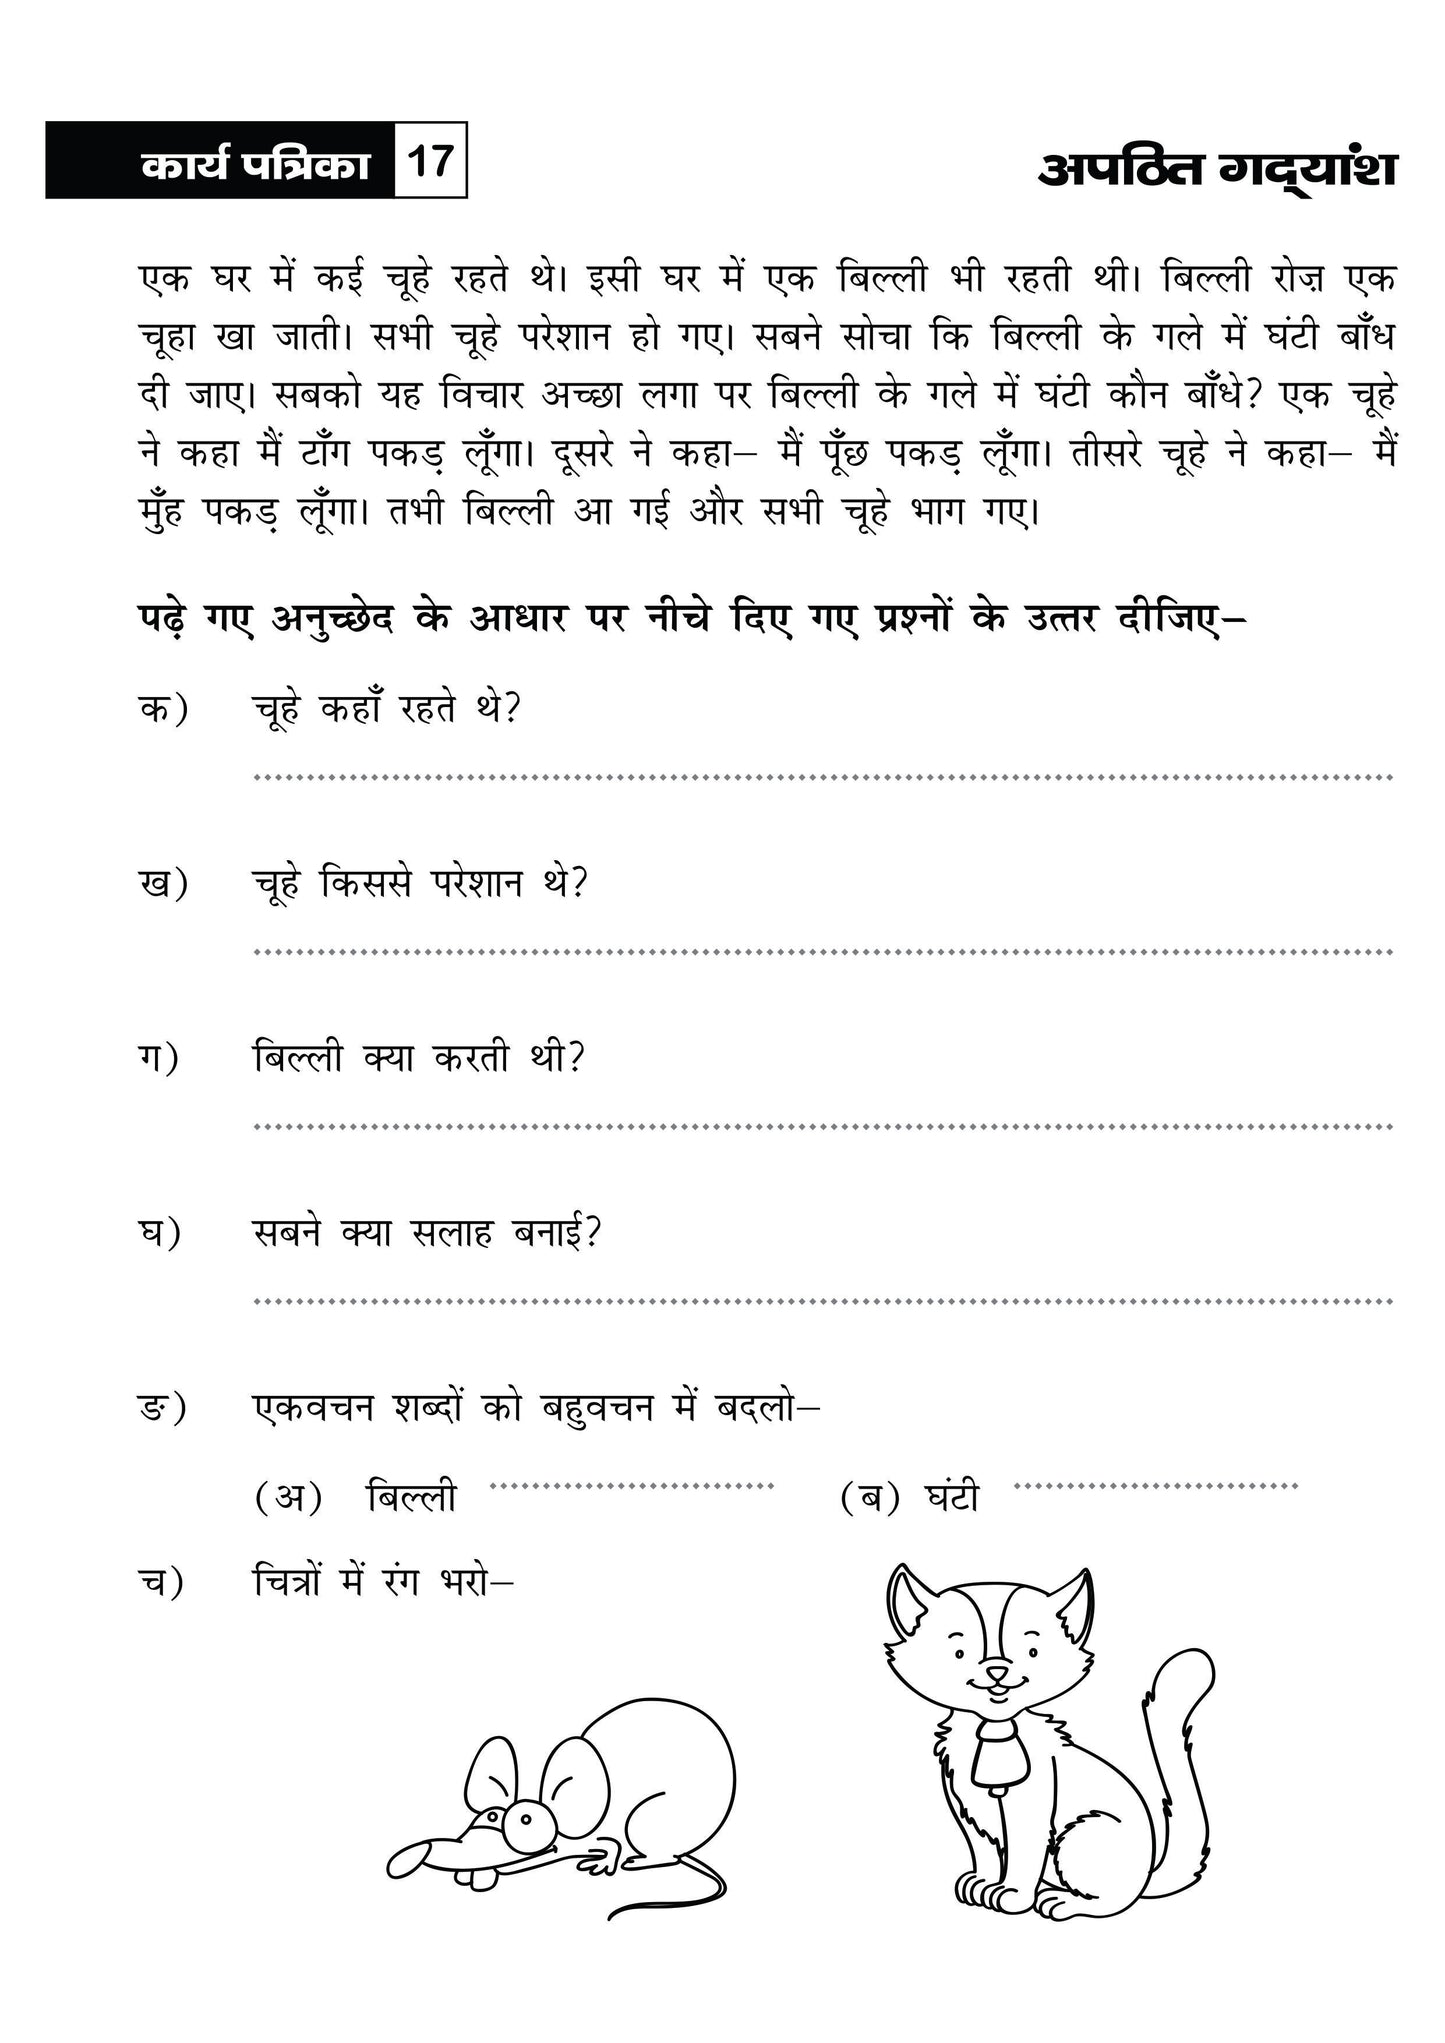 कार्य पत्रिका 17
अपठित गद्यांश
एक घर में कई चूहे रहते थे। इसी घर में एक बिल्ली भी रहती थी। बिल्ली रोज़ एक
चूहा खा जाती। सभी चूहे परेशान हो गए। सबने सोचा कि बिल्ली के गले में घंटी बाँध
दी जाए। सबको यह विचार अच्छा लगा पर बिल्ली के गले में घंटी कौन बाँधे? एक चूहे
ने कहा मैं टाँग पकड़ लूँगा। दूसरे ने कहा– मैं पूँछ पकड़ लूँगा। तीसरे चूहे ने कहा– मैं
मुँह पकड़ लूँगा। तभी बिल्ली आ गई और सभी चूहे भाग गए।
पढ़े गए अनुच्छेद के आधार पर नीचे दिए गए प्रश्नों के उत्तर दीजिए–
क) चूहे कहाँ रहते थे?
ख) चूहे किससे परेशान थे?
ग) बिल्ली क्या करती थी?
घ) सबने क्या सलाह बनाई?
ङ) एकवचन शब्दों को बहुवचन में बदलो–
(अ) बिल्ली (ब) घंटी
च) चित्रों में रंग भरो–